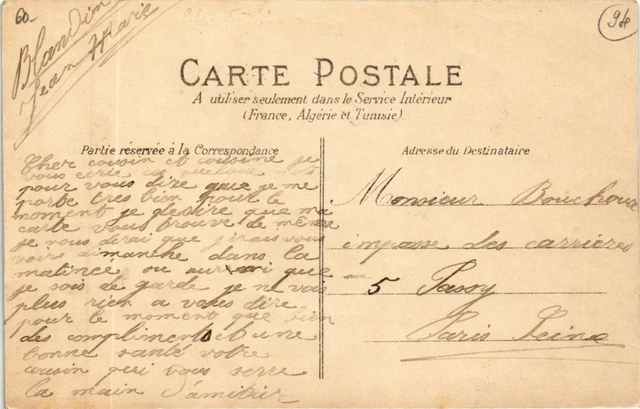 60.
94
Blandin
Jean Marie
CARTE POSTALE
A utiliser seulement dans le Service Intérieur
(France, Algérie et Tunisie)
Partie réservée à la Correspondance
Cher cousin et cousine je
vous écrie ces quelques mots
pour vous dire que je me
porte tres bien pour le
moment je desire que ma
carte vous trouve de même
je vous dirai que j'irais vous
voir dimanche dans la
matinee ou que
je sois de garde je ne vois
plus rien a vous dire
pour le moment que bien
des compliment et une
bonne santé votre
cousin qui vous serre
la main D'amitier
Adresse du Destinataire
Monsieur
impasse des carrières
5 Passy
Paris Seine